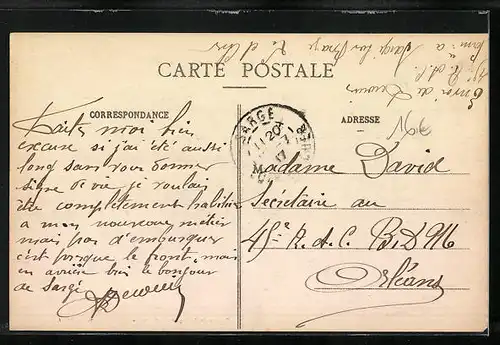 Envoi de
CARTE POSTALE
CORRESPONDANCE
ADRESSE
SARGÉ
16€
Faites moi bien
excuse si j'ai été aussi
long sans vous donner
signe de vie je voulais
être complètement habituer
a mon nouveau métier
mais pas d'embusquer
c'est presque le front, mais
en arrière bien le bonjour
de Sargé
Madame David
Secrétaire au
45e R. A. C. B.D.M
Orléans